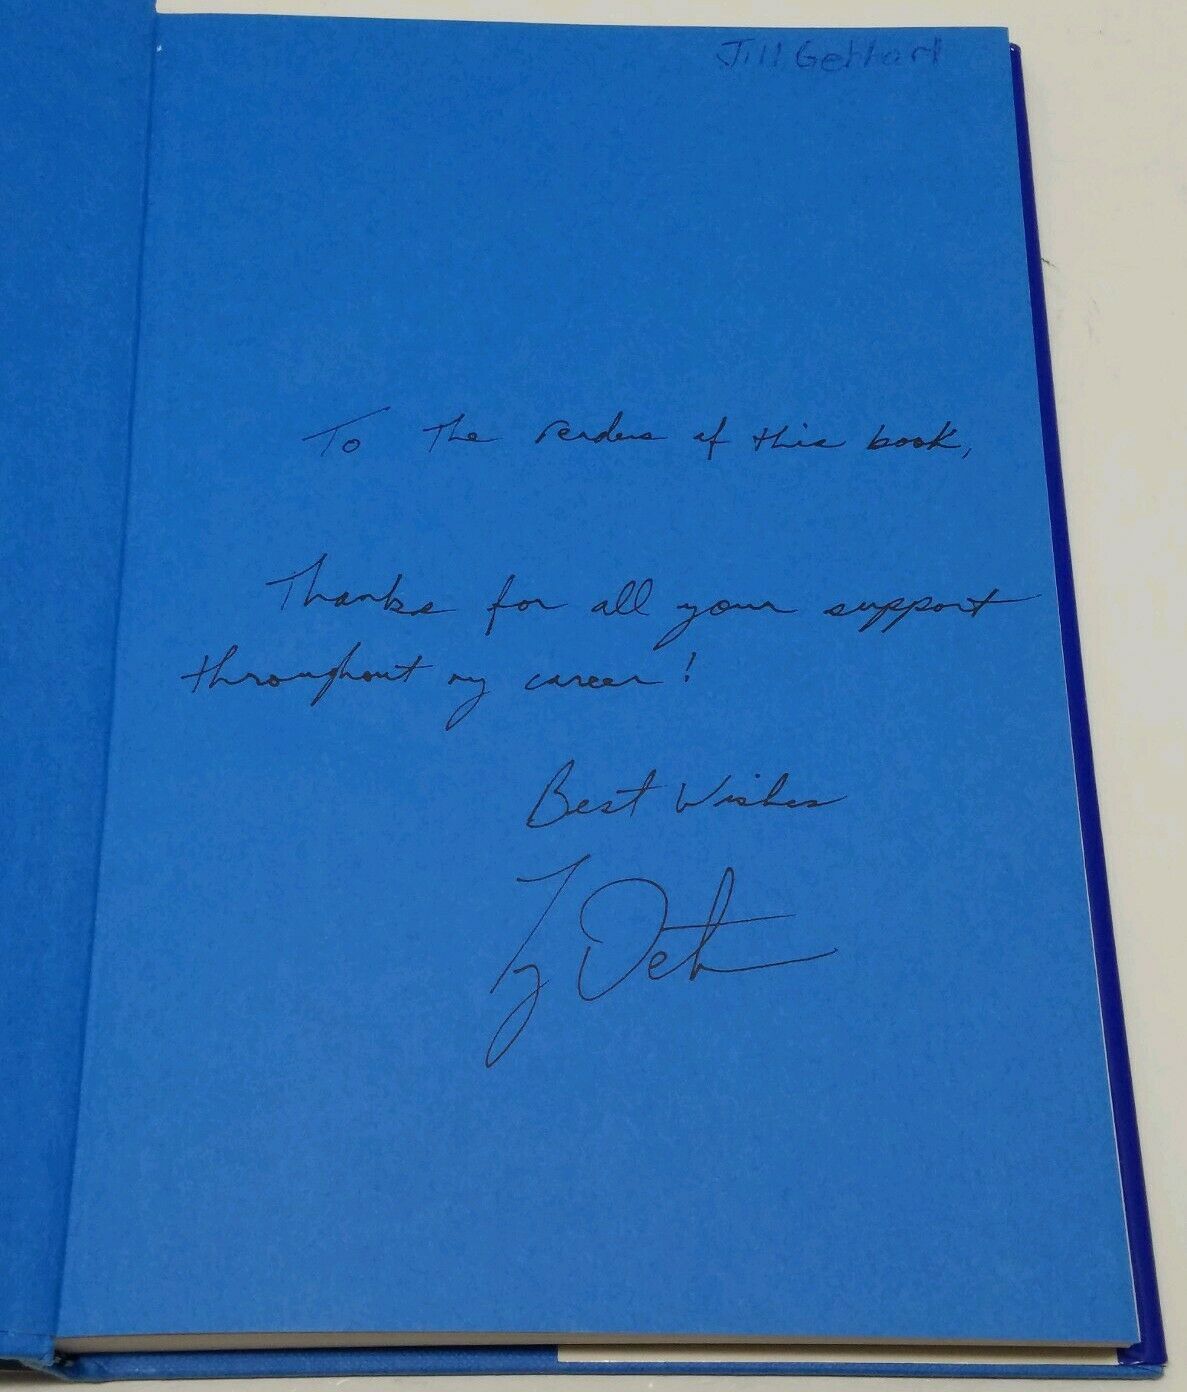 Jill Gebhart
To The readers of this book,
Thanks for all your support
throughout my career!
Best Wishes
Ty Detmer